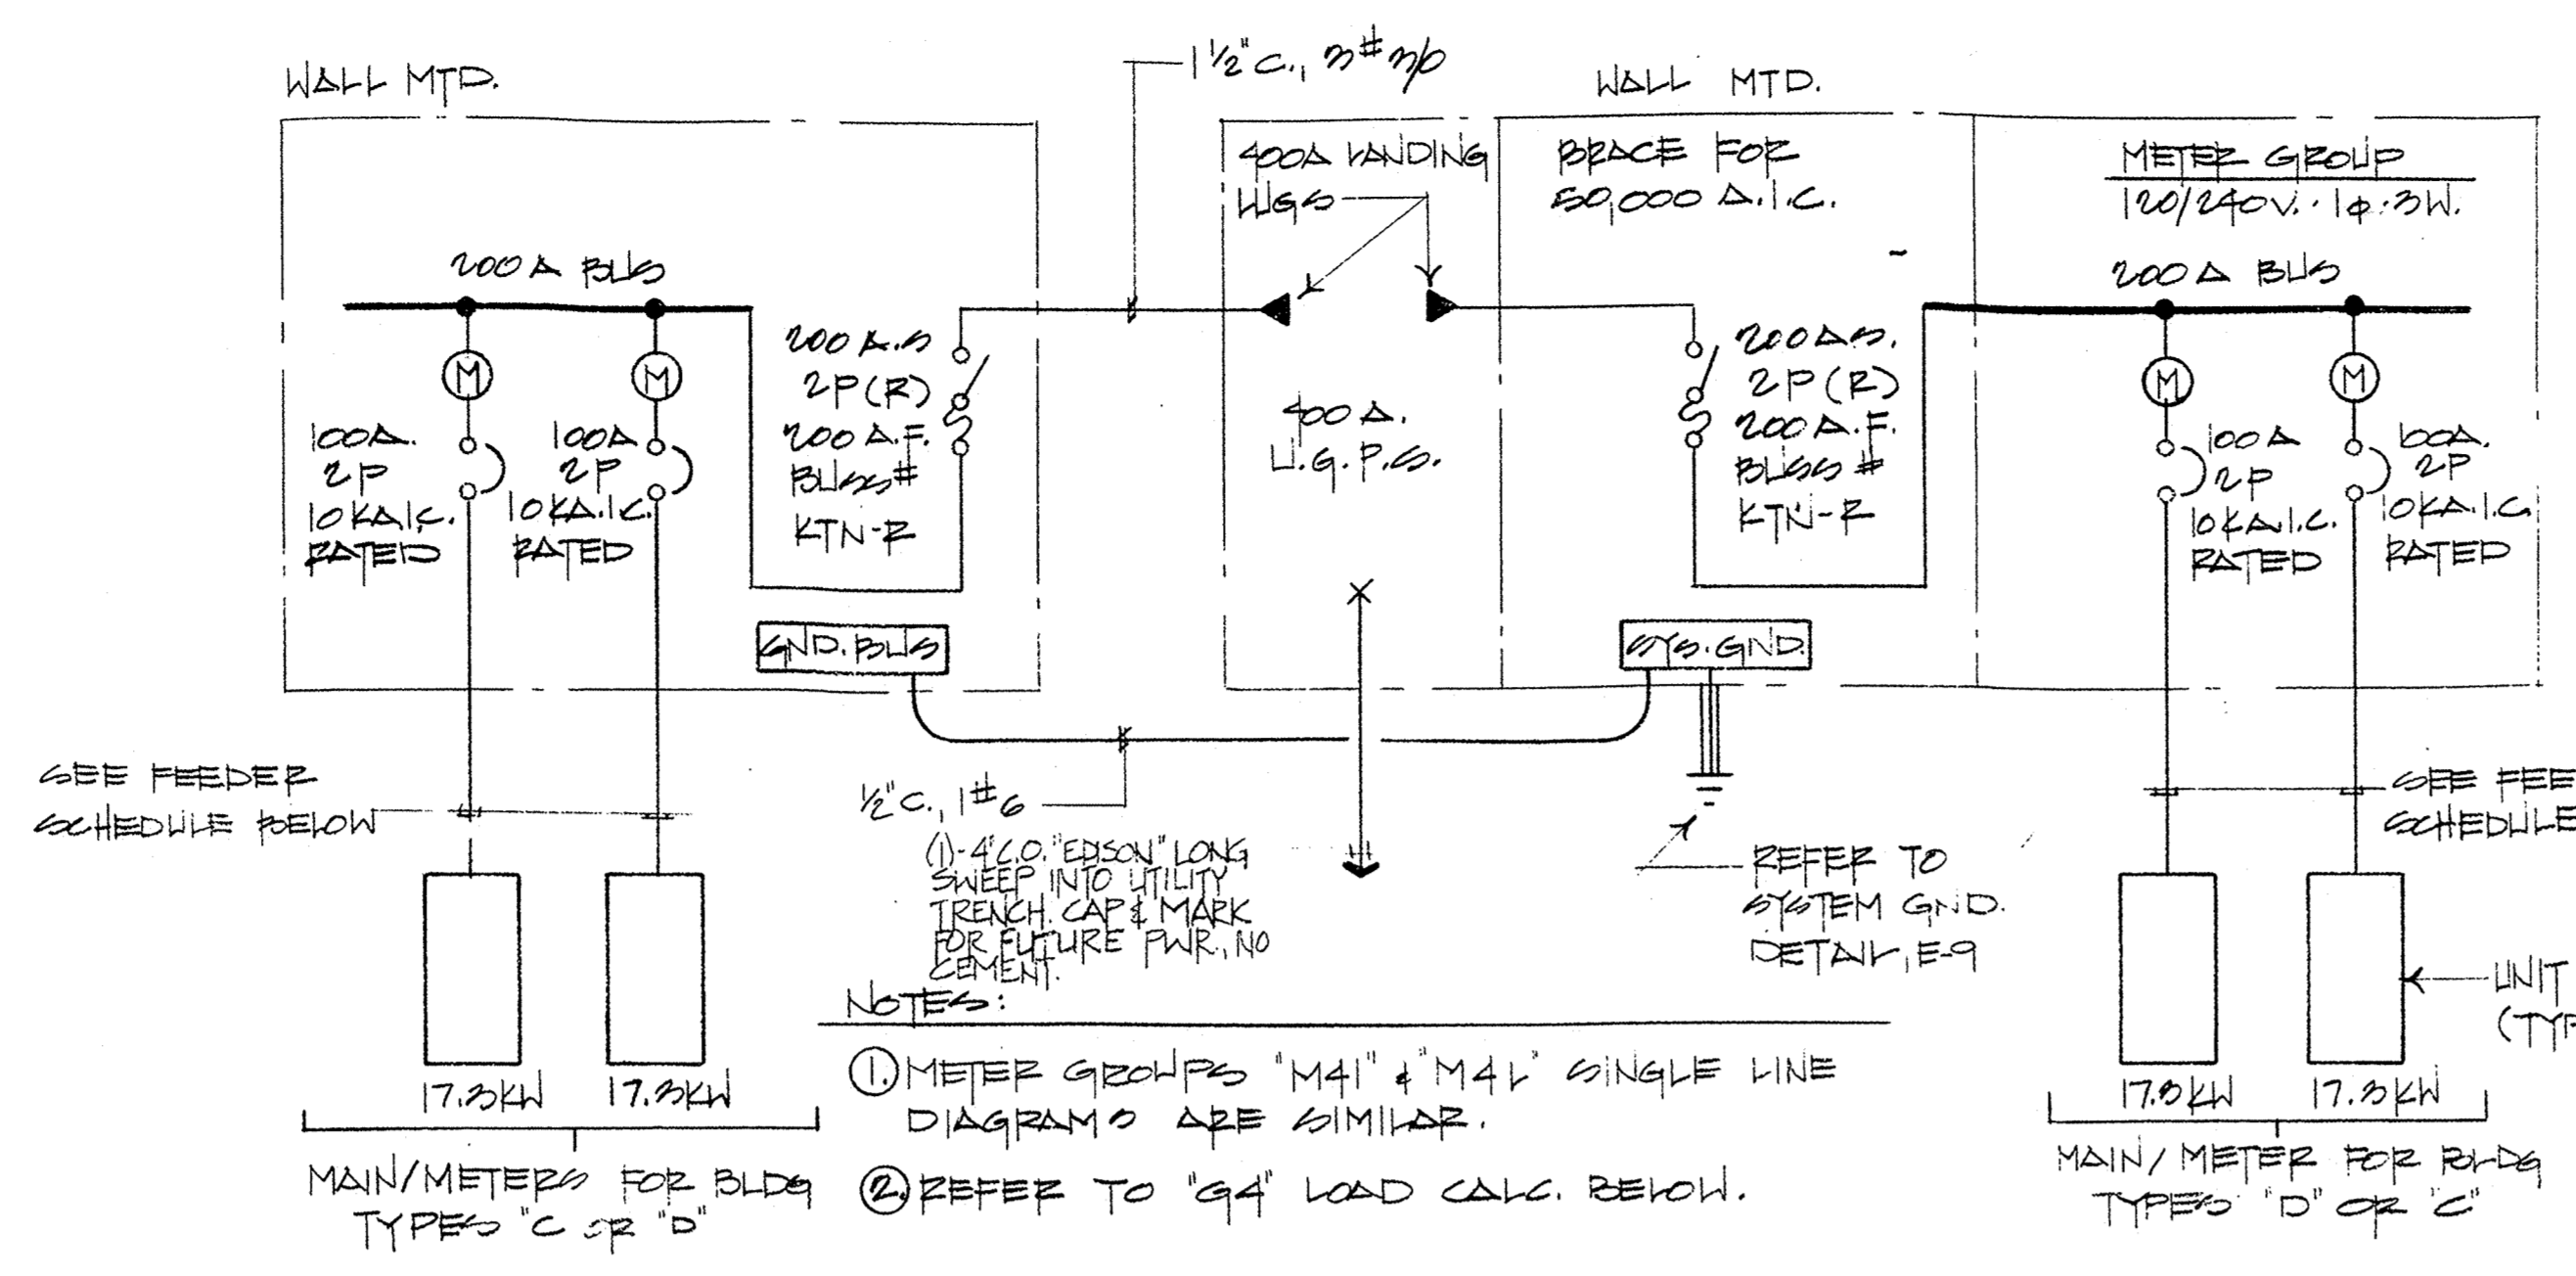 WALL MTD.
1 1/2" C., 3 # 3/0
WALL MTD.
400A LANDING
LUGS
BRACE FOR
50,000 A.I.C.
METER GROUP
120/240V. · 1φ · 3W.
200 A BUS
200 A BUS
200 A.S
2P (R)
200 A.F.
BUSS #
KTN-R
400 A.
U.G.P.S.
200 AS.
2P (R)
200 A.F.
BUSS #
KTN-R
M
M
M
M
100A.
2P
10KA.I.C.
RATED
100A
2P
10KA.I.C.
RATED
100A
2P
10KA.I.C.
RATED
100A.
2P
10KA.I.C.
RATED
GND. BUS
SYS. GND.
SEE FEEDER
SCHEDULE BELOW
1/2" C., 1 # 6
(1)-4"C.O. "EDISON" LONG
SWEEP INTO UTILITY
TRENCH. CAP & MARK
FOR FUTURE PWR., NO
CEMENT.
REFER TO
SYSTEM GND.
DETAIL, E-9
SEE FEE
SCHEDULE
UNIT
(TYP
17.3KW
17.3KW
17.3KW
17.3KW
MAIN/METERS FOR BLDG
TYPES "C OR "D"
NOTES:
1. METER GROUPS "M41" & "M4L" SINGLE LINE
DIAGRAMS ARE SIMILAR.
2. REFER TO "G4" LOAD CALC. BELOW.
MAIN/METER FOR BLDG
TYPES "D" OR "C"